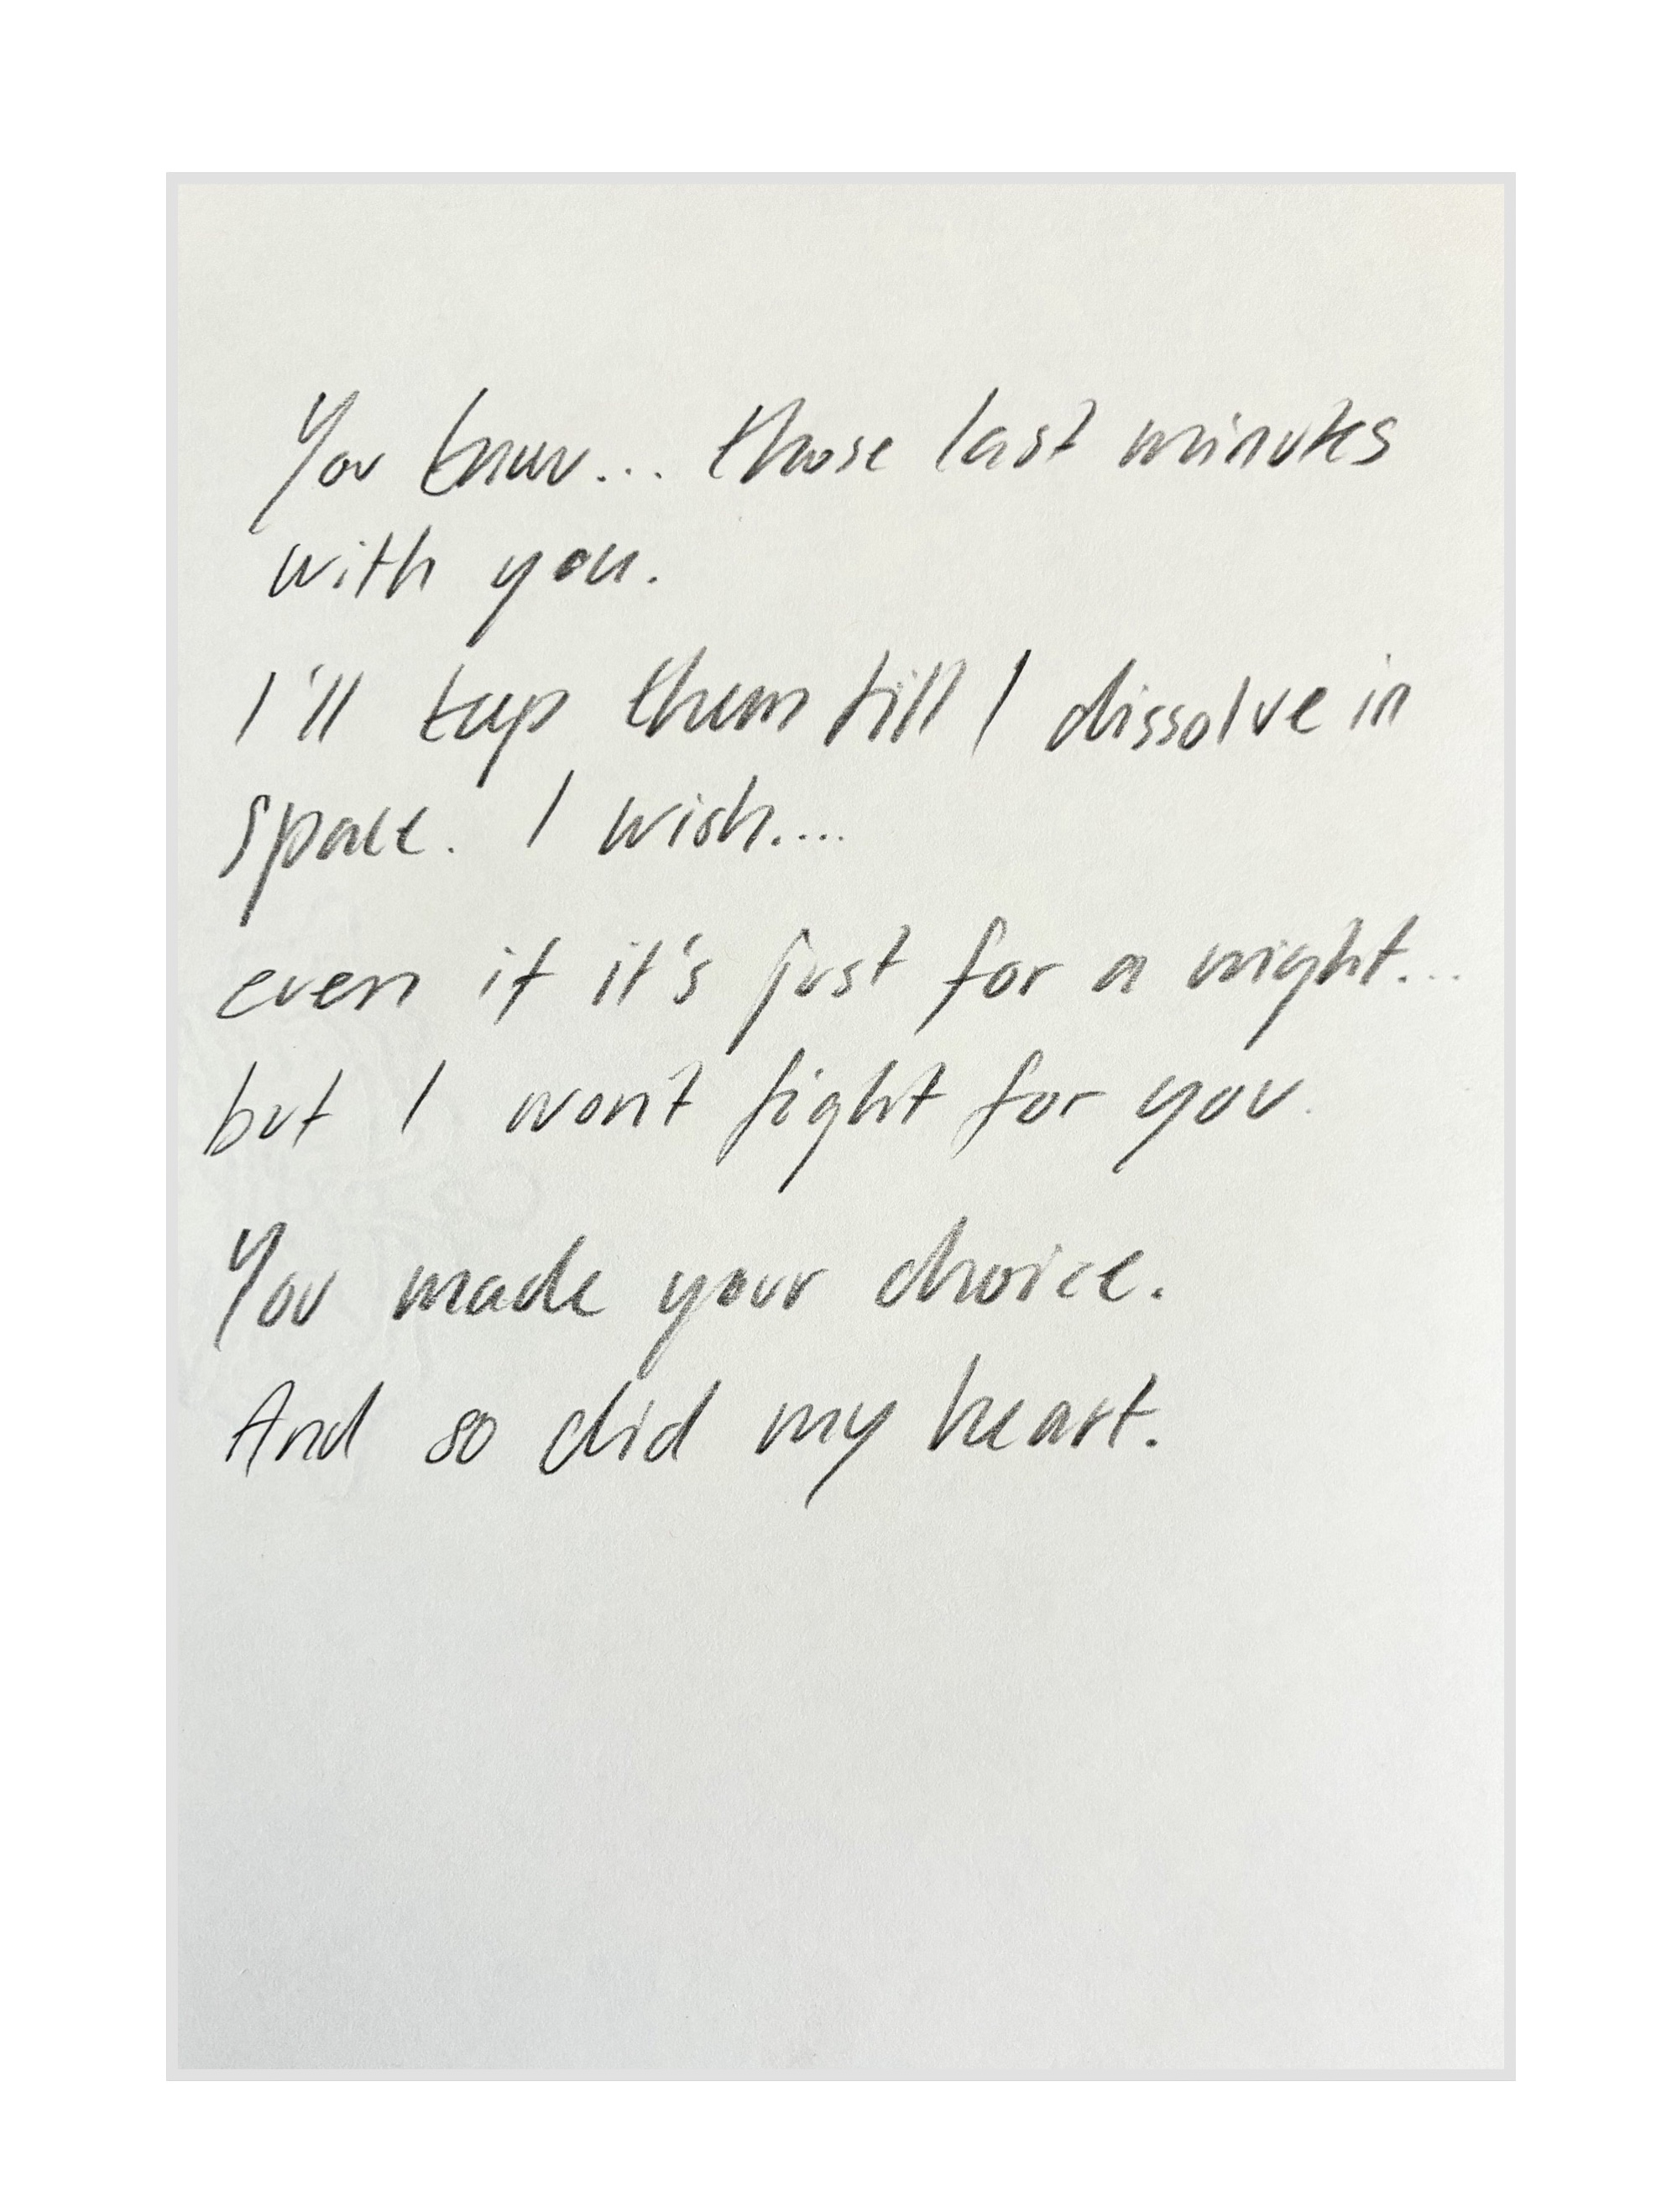 You know... those last minutes
with you.
I'll keep them till I dissolve in
space. I wish....
even if it's just for a night...
but I won't fight for you.
You made your choice.
And so did my heart.